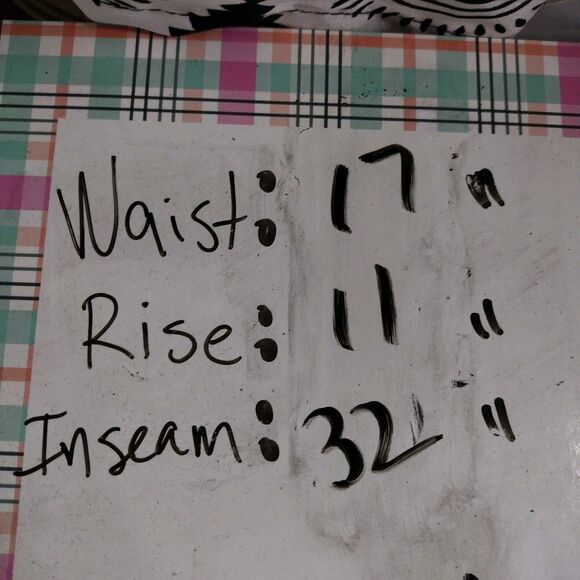 Waist: 17"
Rise: 11"
Inseam: 32"